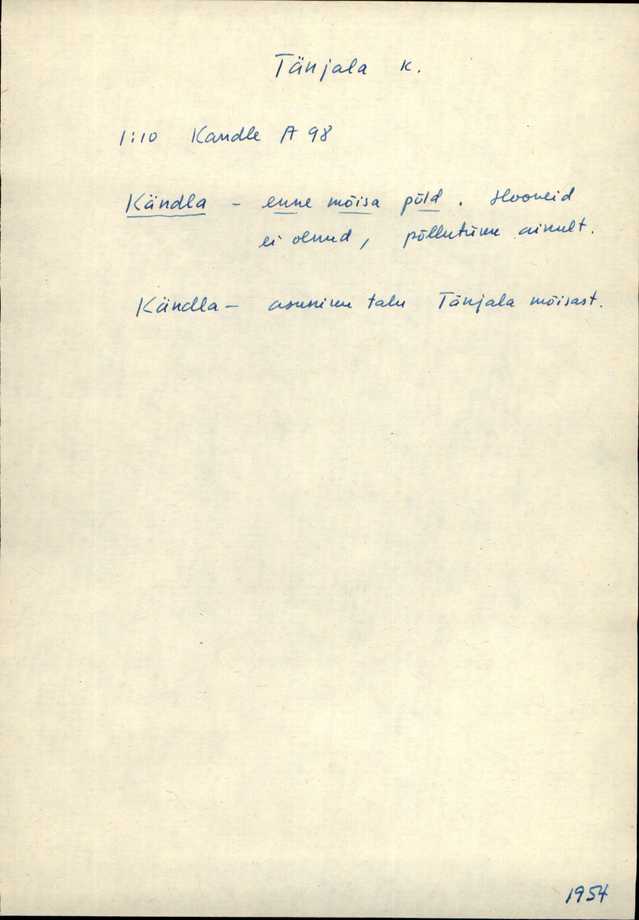 Tänjala k.
1:10 Kandle A 98
Kändla - enne mõisa põld. Hooneid
ei olnud, põllutükk ainult.
Kändla - asunikutalu Tänjala mõisast.
1954